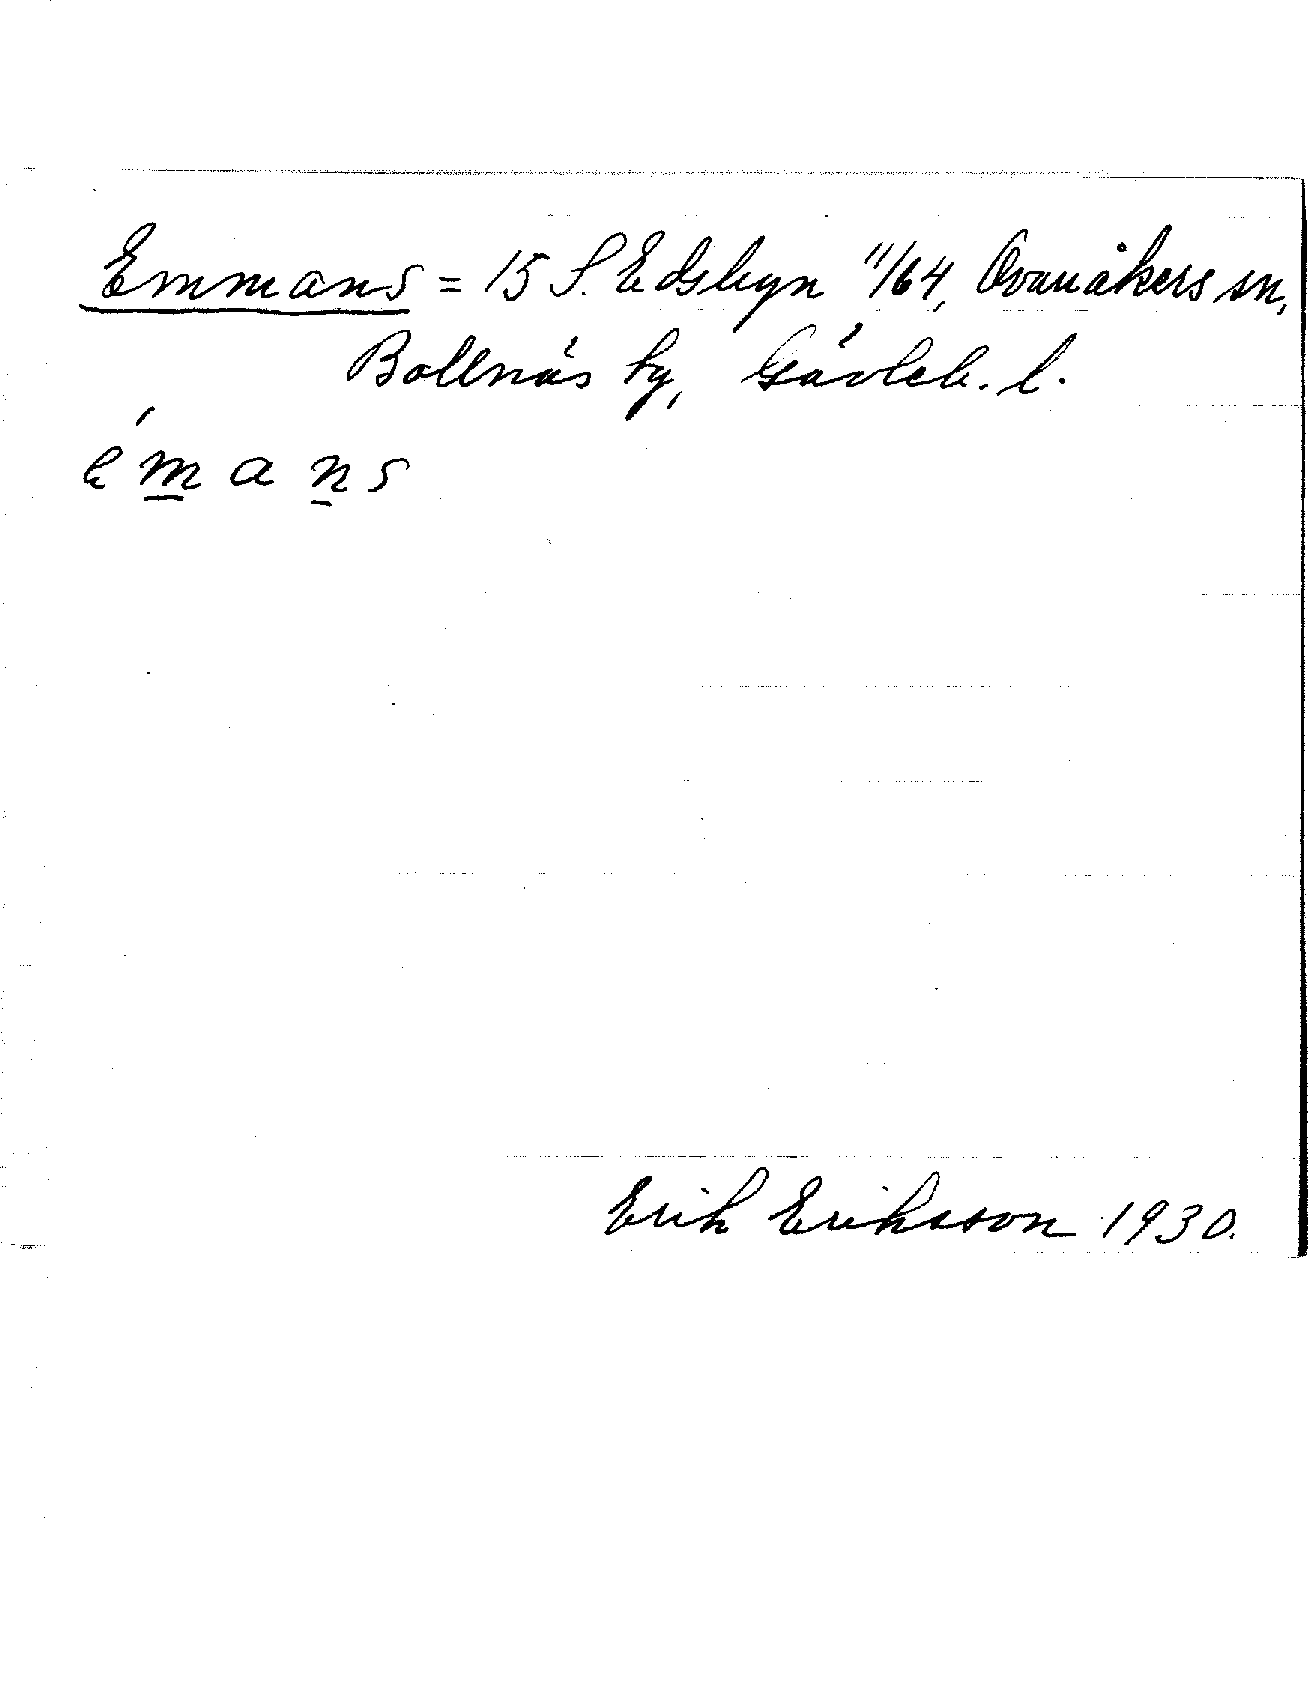 Emmans = 15 S. Edsbyn 11/64, Ovanåkers sn,
Bollnäs tg, Gävleb. l.
émans
Erik Eriksson 1930.